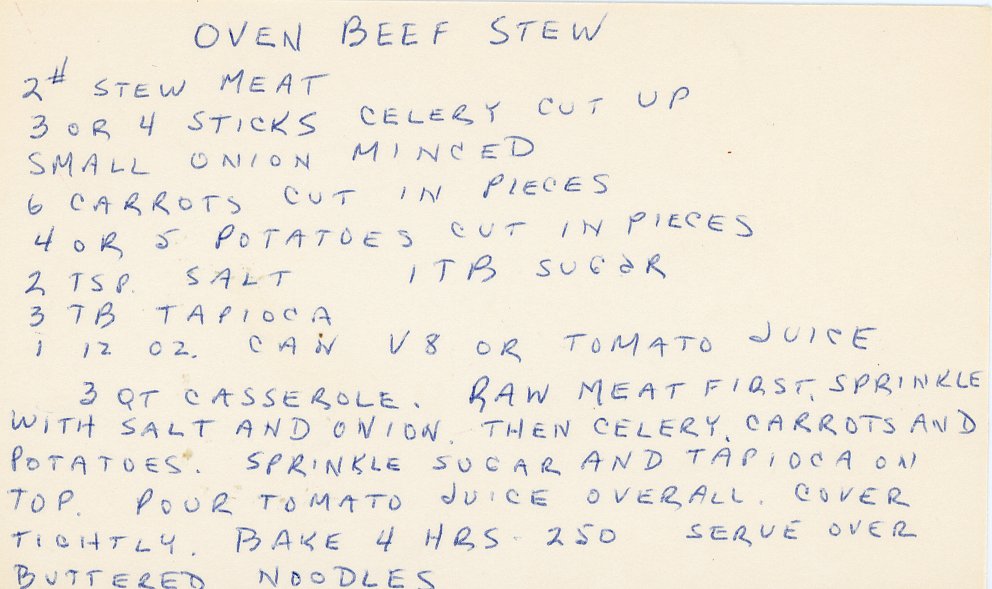 OVEN BEEF STEW
2# STEW MEAT
3 OR 4 STICKS CELERY CUT UP
SMALL ONION MINCED
6 CARROTS CUT IN PIECES
4 OR 5 POTATOES CUT IN PIECES
2 TSP. SALT 1 TB SUGAR
3 TB TAPIOCA
1 12 OZ. CAN V8 OR TOMATO JUICE
3 QT CASSEROLE. RAW MEAT FIRST, SPRINKLE
WITH SALT AND ONION. THEN CELERY, CARROTS AND
POTATOES. SPRINKLE SUGAR AND TAPIOCA ON
TOP. POUR TOMATO JUICE OVERALL. COVER
TIGHTLY. BAKE 4 HRS - 250 SERVE OVER
BUTTERED NOODLES